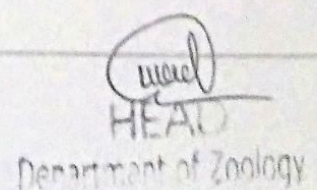 HEAD
Department of Zoology